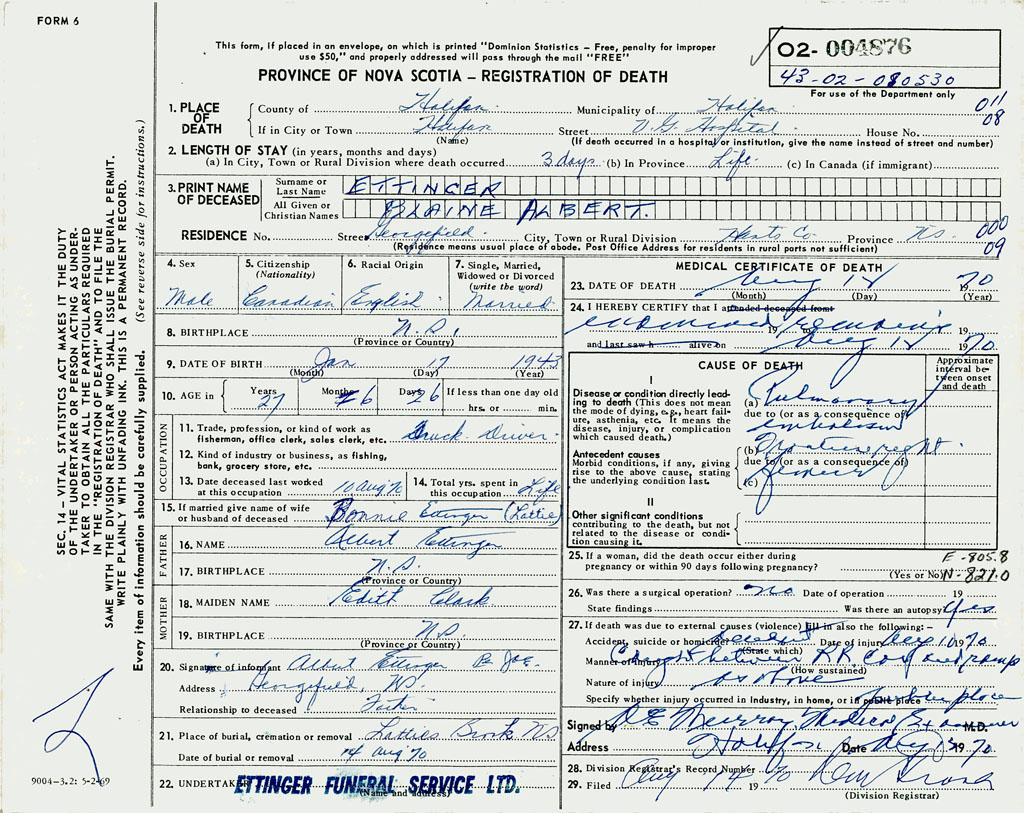 FORM 6
This form, if placed in an envelope, on which is printed "Dominion Statistics – Free, penalty for improper
use $50," and properly addressed will pass through the mail "FREE"
PROVINCE OF NOVA SCOTIA – REGISTRATION OF DEATH
02- 004876
43-02-080530
For use of the Department only
011
08
1. PLACE OF DEATH
County of Halifax Municipality of Halifax
If in City or Town Halifax Street V.G. Hospital House No.
(Name) (If death occurred in a hospital or institution, give the name instead of street and number)
2. LENGTH OF STAY (in years, months and days)
(a) In City, Town or Rural Division where death occurred 3 days (b) In Province Life (c) In Canada (if immigrant)
3. PRINT NAME OF DECEASED
Surname or Last Name ETTINGER
All Given or Christian Names BLAINE ALBERT.
RESIDENCE No. Street Georgefield, City, Town or Rural Division Hants Co. Province N.S.
(Residence means usual place of abode. Post Office Address for residents in rural parts not sufficient)
000
09
4. Sex
Male
5. Citizenship
(Nationality)
Canadian
6. Racial Origin
English
7. Single, Married,
Widowed or Divorced
(write the word)
Married
8. BIRTHPLACE N.S.
(Province or Country)
9. DATE OF BIRTH Jan 17 1943
(Month) (Day) (Year)
10. AGE in Years 27 Months 6 Days 26 If less than one day old
hrs. or min.
OCCUPATION
11. Trade, profession, or kind of work as
fisherman, office clerk, sales clerk, etc. Truck Driver
12. Kind of industry or business, as fishing,
bank, grocery store, etc.
13. Date deceased last worked
at this occupation 10 Aug 70
14. Total yrs. spent in
this occupation Life
15. If married give name of wife
or husband of deceased Bonnie Ettinger (Lattie)
FATHER
16. NAME Albert Ettinger
17. BIRTHPLACE N.S.
(Province or Country)
MOTHER
18. MAIDEN NAME Edith Clark
19. BIRTHPLACE N.S.
(Province or Country)
20. Signature of informant Albert Ettinger
Address Georgefield, NS
Relationship to deceased Father
21. Place of burial, cremation or removal Latties Brook NS
Date of burial or removal 14 Aug 70
22. UNDERTAKER ETTINGER FUNERAL SERVICE LTD.
(Name and address)
MEDICAL CERTIFICATE OF DEATH
23. DATE OF DEATH Aug 12 1970
(Month) (Day) (Year)
24. I HEREBY CERTIFY that I attended deceased from
examined remains 19
and last saw h alive on Aug 12 1970
CAUSE OF DEATH
Approximate
interval be-
tween onset
and death
I
Disease or condition directly lead-
ing to death (This does not mean
the mode of dying, e.g., heart fail-
ure, asthenia, etc. It means the
disease, injury, or complication
which caused death.)
(a) Pulmonary
due to (or as a consequence of)
embolism
Antecedent causes
Morbid conditions, if any, giving
rise to the above cause, stating
the underlying condition last.
(b) Fracture right
due to (or as a consequence of)
femur
(c)
II
Other significant conditions
contributing to the death, but not
related to the disease or condi-
tion causing it.
25. If a woman, did the death occur either during
pregnancy or within 90 days following pregnancy?
(Yes or No)
E-805.8
N-821.0
26. Was there a surgical operation? No Date of operation 19
State findings Was there an autopsy? Yes
27. If death was due to external causes (violence) fill in also the following:–
Accident, suicide or homicide? Accident Date of injury Aug 10 1970
(State which)
Manner of injury Caught between R.R. Car and ramp
(How sustained)
Nature of injury as above
Specify whether injury occurred in Industry, in home, or in public place public place
Signed by Murray, Medical Examiner M.D.
Address Halifax Date Aug 13 1970
28. Division Registrar's Record Number
29. Filed Aug 14 1970
(Division Registrar)
SEC. 14 – VITAL STATISTICS ACT MAKES IT THE DUTY
OF THE UNDERTAKER OR PERSON ACTING AS UNDER-
TAKER TO OBTAIN ALL THE PARTICULARS REQUIRED
IN THE "REGISTRATION OF DEATH" AND TO FILE THE
SAME WITH THE DIVISION REGISTRAR WHO SHALL ISSUE THE BURIAL PERMIT.
WRITE PLAINLY WITH UNFADING INK. THIS IS A PERMANENT RECORD.
Every item of information should be carefully supplied. (See reverse side for instructions.)
9004-3.2: 5-2-69